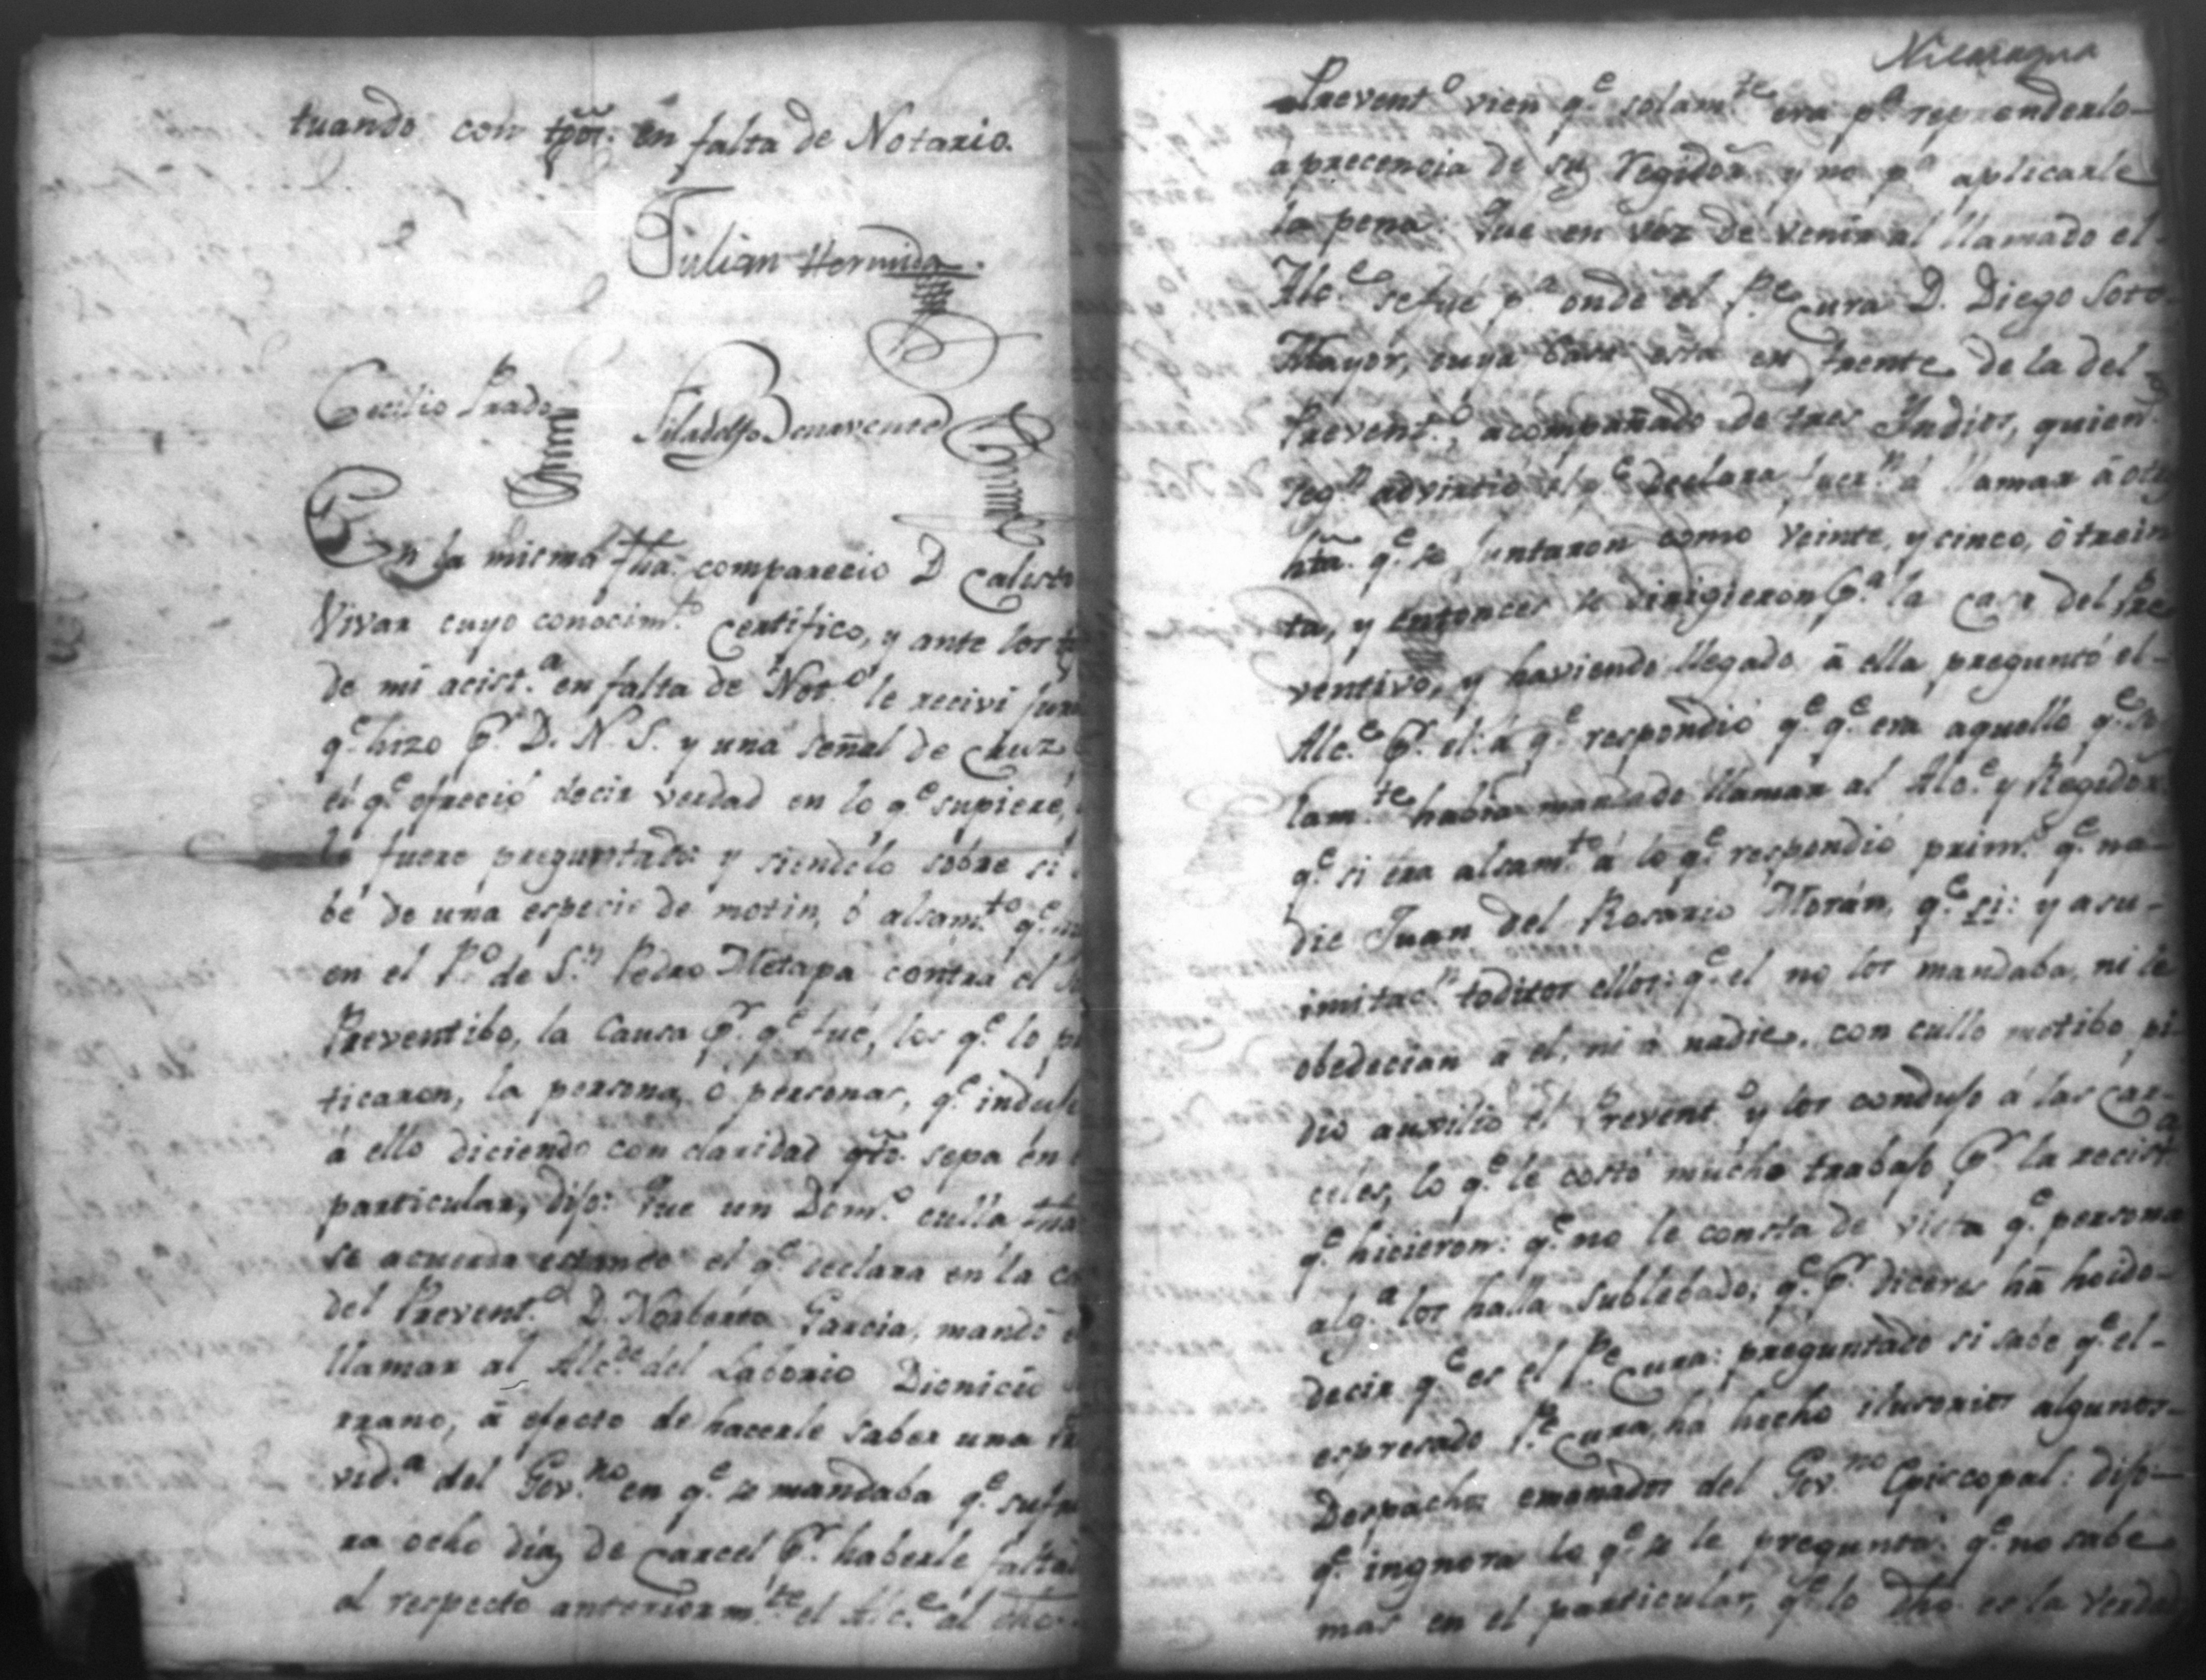 tuando con tgõs. en falta de Notario.
Julian Hermida.
Cecilio Prado
Filadelfo Benavente
En la misma fha. comparecio D. Calisto
Vivar cuyo conocim.to certifico, y ante los
de mi acist.a en falta de Not.o le recivi jura
q.e hizo p.r D. N. S. y una señal de cruz
el q.e ofreció decir verdad en lo q.e supiere,
le fuere preguntado: y siendolo sobre si
be de una especie de motin, ó alsam.to q.e
en el P.o de S.n Pedro Metapa contra el
Preventibo, la causa p.r q.e fué, los q.e lo
ticaron, la persona, ó personas, q.e indujo
á ello diciendo con claridad qto. sepa en
particular, dijo: Que un Dom.o culla fha
se acuerda estando el q.e declara en la
del Prevent.o D. Norberto Garcia, mandó
llamar al Alc.de del Laborio Dionicio
rrano, á efecto de hacerle saber una
vid.a del Gov.no en q.e se mandaba q.e
ra ocho dias de carcel p.r haberle
al respecto anteriorm.te el Alc.e al dho.
Nicaragua
Prevent.o vien q.e solam.te era p.a reprenderlo
á precencia de su Regidor y no p.a aplicarle
la pena: Que en vez de venir al llamado el
Alc.e se fue p.a onde el P.e Cura D. Diego Soto
Mayor, cuya casa está en frente de la del
Prevent.o, acompañado de tres Indios, quien.s
seg.n advirtio el q.e declara, fuer.n á llamar á otros
hta. q.e se juntaron como veinte, y cinco, ó trein
ta, y entonces se dirigieron p.a la casa del Pre
ventivo, y haviendo llegado á ella preguntó el
Alc.e p.r el: á q.e respondió q.e q.e era aquello q.e so
lam.te habia mandado llamar al Alc.e y Regidor
q.e si era alsam.to á lo q.e respondió prim.o q.e na
die Juan del Rosario Morán, q.e si: y a su
imitac.n toditos ellos: q.e el no los mandaba, ni le
obedecian á el, ni á nadie, con cullo motibo pi
dió auxilio el Prevent.o y los condujo á las Car
celes, lo q.e le costó mucho trabajo p.r la recist.a
q.e hicieron: q.e no le consta de vista q.e persona
alg.a los halla sublebado; q.e p.r diceres há hoido
decir q.e es el P.e Cura: preguntado si sabe q.e el
espresado P.e Cura, há hecho ilusorios algunos
Despachos emanados del Gov.no Episcopal: dijo
q.e ingnora lo q.e se le pregunta: q.e no sabe
mas en el particular, q.e lo dho es la verdad